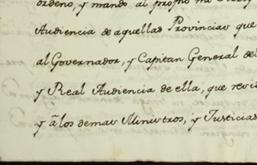 ordeno, y mando al propio mi
Audiencia de aquellas Provincias que
al Governador, y Capitan General de
y Real Audiencia de ella, que
y a los demas Ministros, y Justicias